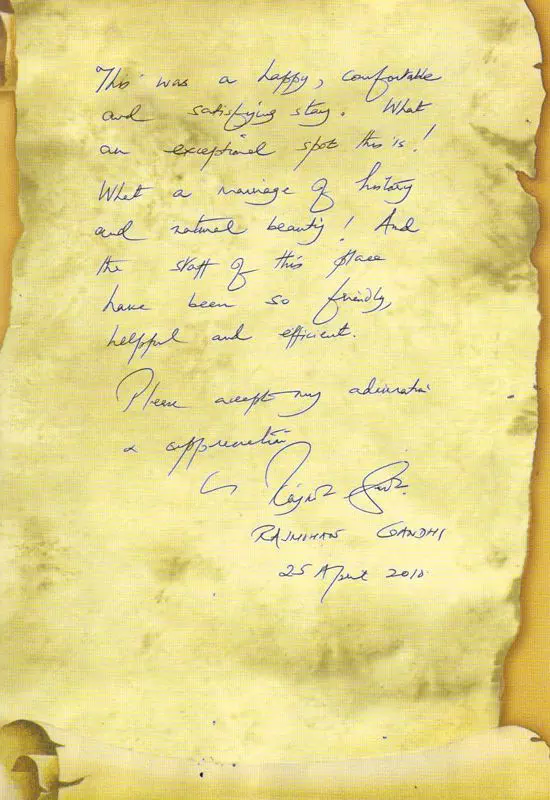 This was a happy, comfortable
and satisfying stay. What
an exceptional spot this is!
What a marriage of history
and natural beauty! And
the staff of this place
have been so friendly,
helpful and efficient.
Please accept my admiration
& appreciation
RAJMOHAN GANDHI
25 April 2010